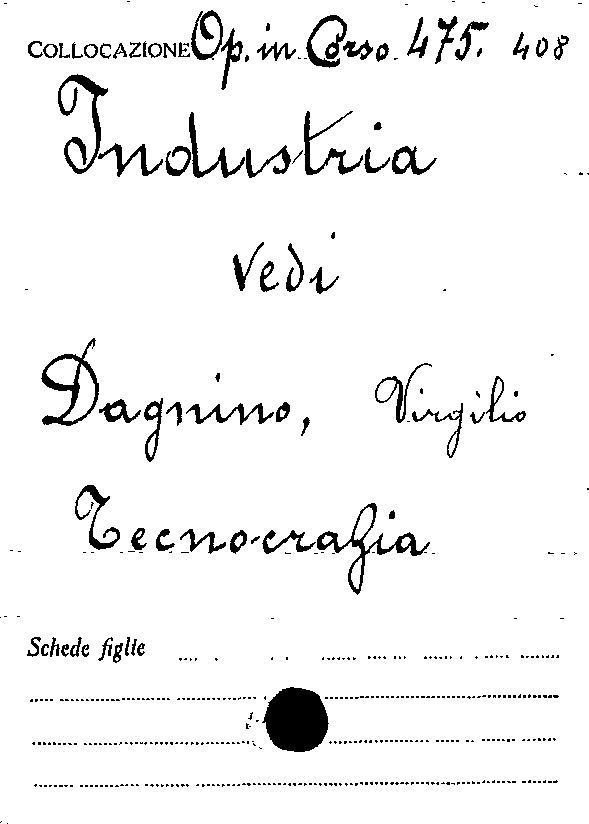 COLLOCAZIONE Op. in Corso 475. 408
Industria
Vedi
Dagnino, Virgilio
Tecnocrazia
Schede figlie